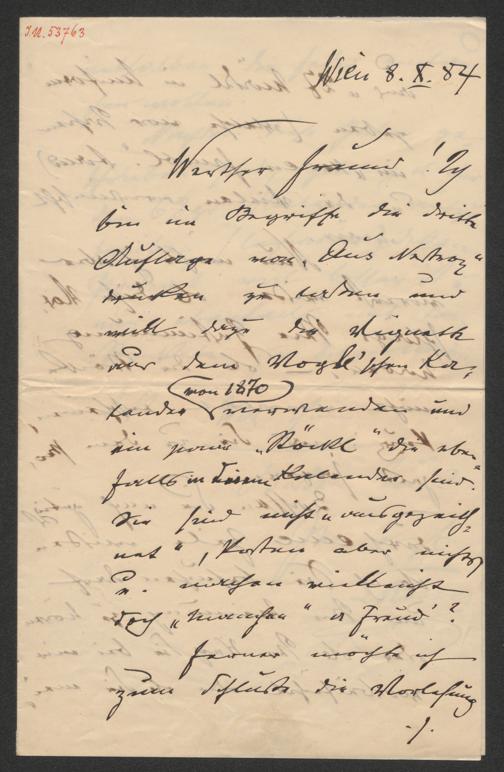 I.N. 53763
Wien 8. X. 84
Werther Freund! Ich
bin im Begriffe die dritte
Auflage von „Aus Nestroy"
drucken zu lassen und
will dazu die Vignette
aus dem Vogl'schen Ka-
lender (von 1870) verwenden und
ein paar „Stöckl" die eben-
falls im Kalender sind.
Sie sind nicht „ausgezeich-
net", kosten aber nichts
u. machen vielleicht
doch „manchen" a Freud'?
Ferner möchte ich
zum Schluße die Vorlesung